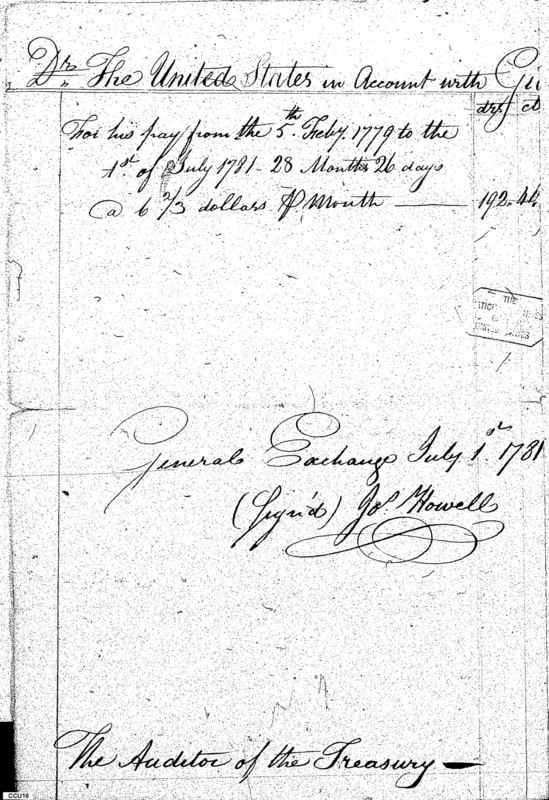 Drs. The United States in Account with
drs ct
For his pay from the 5th Feby. 1779 to the
1st of July 1781 - 28 Months 26 days
@ 6 2/3 dollars ⅌ Month — 192.44
THE
UNITED STATES
General Exchange July 1st. 1781
(Sign'd) Jos. Howell
The Auditor of the Treasury —
CCU16